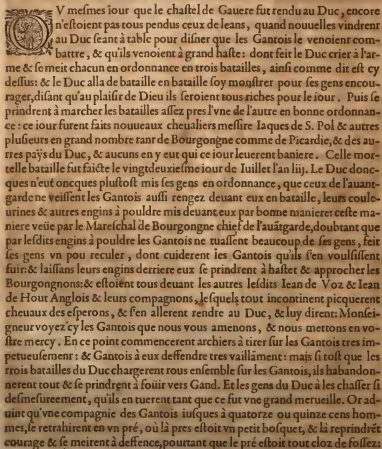 DV mesmes iour que le chastel de Gauere fut rendu au Duc, encore
n'estoient pas tous pendus ceux de leans, quand nouuelles vindrent
au Duc seant à table pour disner que les Gantois le venoient com-
battre, & qu'ils venoient à grand haste: dont feit le Duc crier à l'ar-
me & se meit chacun en ordonnance en trois batailles, ainsi comme dit est cy
dessus: & le Duc alla de bataille en bataille soy monstrer pour ses gens encou-
rager, disant qu'au plaisir de Dieu ils seroient tous riches pour le iour. Puis se
prindrent à marcher les batailles assez pres l'vne de l'autre en bonne ordonnan-
ce: ce iour furent faits nouueaux cheualiers messire Iaques de S. Pol & autres
plusieurs en grand nombre tant de Bourgongne comme de Picardie, & des au-
tres païs du Duc, & aucuns en y eut qui ce iour leuerent baniere. Celle mor-
telle bataille fut faicte le vingtdeuxiesme iour de Iuillet l'an liij. Le Duc donc-
ques n'eut oncques plustost mis ses gens en ordonnance, que ceux de l'auant-
garde ne veissent les Gantois aussi rengez deuant eux en bataille, leurs couleu-
urines & autres engins à pouldre mis deuant eux par bonne maniere: ceste ma-
niere veüe par le Mareschal de Bourgongne chief de l'auãtgarde, doubtant que
par lesdits engins à pouldre les Gantois ne tuassent beaucoup de ses gens, feit
ses gens vn pou reculer, dont cuiderent les Gantois qu'ils s'en voulsissent
fuir: & laissans leurs engins derriere eux se prindrent à haster & approcher les
Bourgongnons: & estoient tous deuant les autres lesdits Iean de Voz & Iean
de Hout Anglois & leurs compagnons, lesquels tout incontinent picquerent
cheuaux des esperons, & s'en allerent rendre au Duc, & luy dirent: Monsei-
gneur voyez cy les Gantois que nous vous amenons, & nous mettons en vo-
stre mercy. En ce point commencerent archiers à tirer sur les Gantois tres im-
petueusement: & Gantois à eux deffendre tres vaillãment: mais si tost que les
trois batailles du Duc chargerent tous ensemble sur les Gantois, ils habandon-
nerent tout & se prindrẽt à fouïr vers Gand. Et les gens du Duc à les chasser si
desmesureement, qu'ils en tuerent tant que ce fut vne grand merueille. Or ad-
uint qu'vne compagnie des Gantois iusques à quatorze ou quinze cens hom-
mes, se retrahirent en vn pré, où là pres estoit vn petit bosquet, & là reprindrẽt
courage & se meirent à deffence, pourtant que le pré estoit tout cloz de fossez: